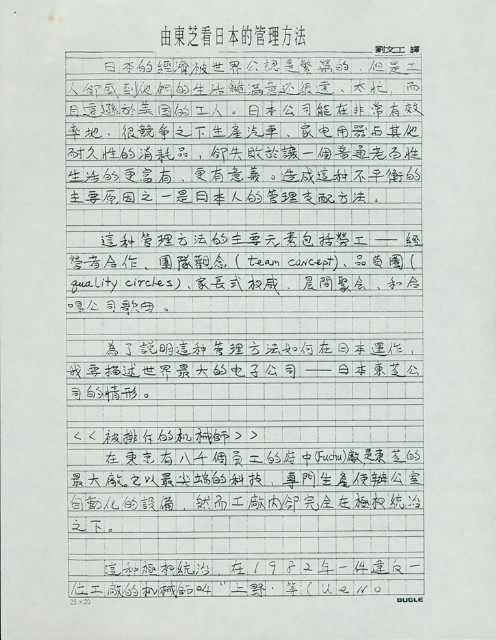 由東芝看日本的管理方法
劉文工 譯
日本的經濟被世界公認是繁榮的，但是工
人卻感到他們的生活離滿意还很遠、太忙，而
且遠遜於美国的工人。日本公司能在非常有效
率地、很競爭之下生產汽車、家电用器与其他
耐久性的消耗品，卻失敗於讓一個普通老百性
生活的更富有、更有意義。造成這种不平衡的
主要原因之一是日本人的管理支配方法。
這种管理方法的主要元素包括勞工——經
營者合作、團隊觀念(team concept)、品負圈(
quality circles)、家長式权威、晨間聚会、和合
唱公司歌曲。
為了說明這种管理方法如何在日本運作，
我要描述世界最大的电子公司——日本東芝公
司的情形。
<<被排斥的机械師>>
在東京有八千個員工的府中(Fuchu)廠是東芝的
最大廠，它以最尖端的科技，專門生產使辦公室
自動化的設備，然而工廠内卻完全在極权統治
之下。
這种極权統治，在1982年一件違反一
位工廠的机械師叫"上野·等(Ueno
25×20
BUGLE